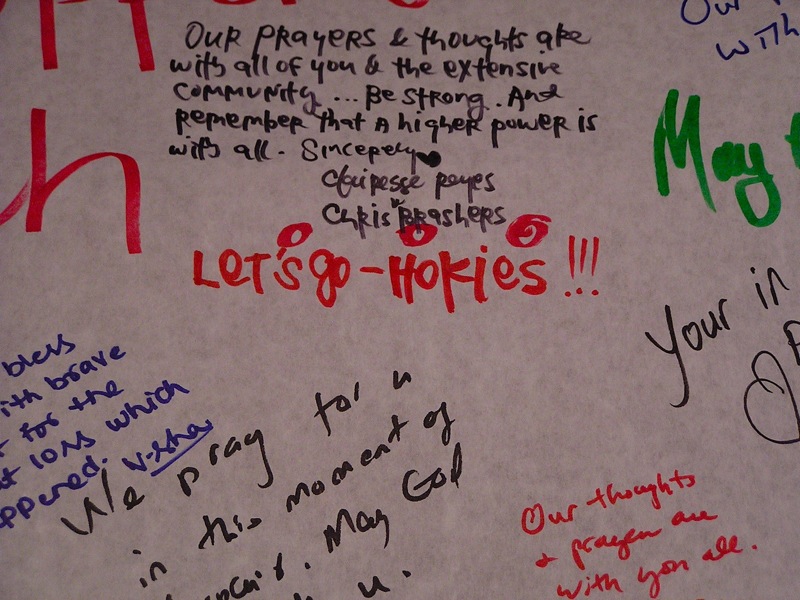 Our prayers & thoughts are
with all of you & the extensive
community... Be strong. And
remember that A higher power is
with all. Sincerely
Chris Brashers
LET'S go - HOKIES!!!
May
Your in
bless
with brave
for the
loss which
We pray for u
in this moment of
May God
u.
Our thoughts
+ prayer are
with you all.
Our
with